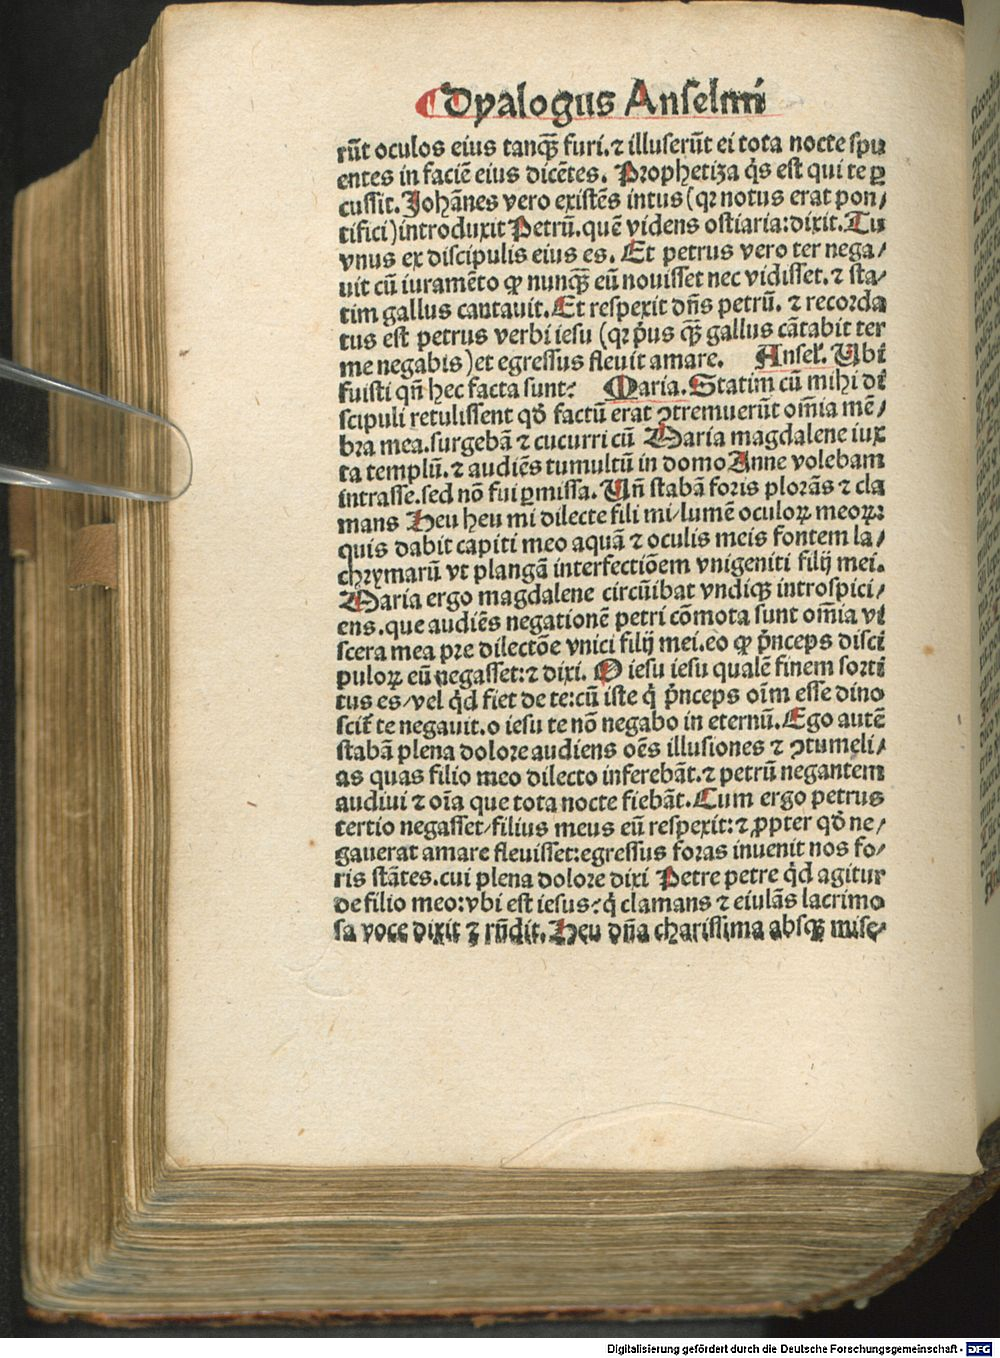 Dyalogus Anselmi
rūt oculos eius tanq̄ȝ furi. ⁊ illuserūt ei tota nocte spu
entes in faciē eius dicētes. Prophetiza q̇s est qui te ꝑ
cussit. Johānes vero existēs intus (qꝛ notus erat pon/
tifici) introduxit Petrū. quē videns ostiaria: dixit. Tu
vnus ex discipulis eius es. Et petrus vero ter nega/
uit cū iuramēto ꝙ nunq̄ȝ eū nouisset nec vidisset. ⁊ sta/
tim gallus cantauit. Et respexit dn̄s petrū. ⁊ recorda
tus est petrus verbi iesu (qꝛ p̓us q̄ȝ gallus cātabit ter
me negabis) et egressus fleuit amare. Ansel̓. Ubi
fuisti qn̄ hec facta sunt? Maria. Statim cū mihi di
scipuli retulissent qd̓ factū erat ꝯtremuerūt om̄ia mē/
bra mea. surgebā ⁊ cucurri cū Maria magdalene iux
ta templū. ⁊ audiēs tumultū in domo Anne volebam
intrasse. sed nō fui ꝑmissa. Un̄ stabā foris plorās ⁊ cla
mans Heu heu mi dilecte fili mi/ lumē oculoꝝ meoꝝ:
quis dabit capiti meo aquā ⁊ oculis meis fontem la/
chrymarū vt plangā interfectiōem vnigeniti filij mei.
Maria ergo magdalene circūibat vndiqȝ introspici/
ens. que audiēs negationē petri cōmota sunt om̄ia vi
scera mea pre dilectōe vnici filij mei. eo ꝙ p̓nceps disci
puloꝝ eū negasset: ⁊ dixi. O iesu iesu qualē finem sorti
tus es/ vel q̇d fiet de te: cū iste q̇ p̓nceps oīm esse dino
scit̓ te negauit. o iesu te nō negabo in eternū. Ego autē
stabā plena dolore audiens oēs illusiones ⁊ ꝯtumeli/
as quas filio meo dilecto inferebāt. ⁊ petrū negantem
audiui ⁊ oīa que tota nocte fiebāt. Cum ergo petrus
tertio negasset/ filius meus eū respexit: ⁊ ꝓpter qd̓ ne/
gauerat amare fleuisset: egressus foras inuenit nos fo/
ris stātes. cui plena dolore dixi Petre petre q̇d agitur
de filio meo: vbi est iesus? q̇ clamans ⁊ eiulās lacrimo
sa voce dixit ⁊ rn̄dit. Heu dn̄a charissima absqȝ mise/
Digitalisierung gefördert durch die Deutsche Forschungsgemeinschaft - DFG